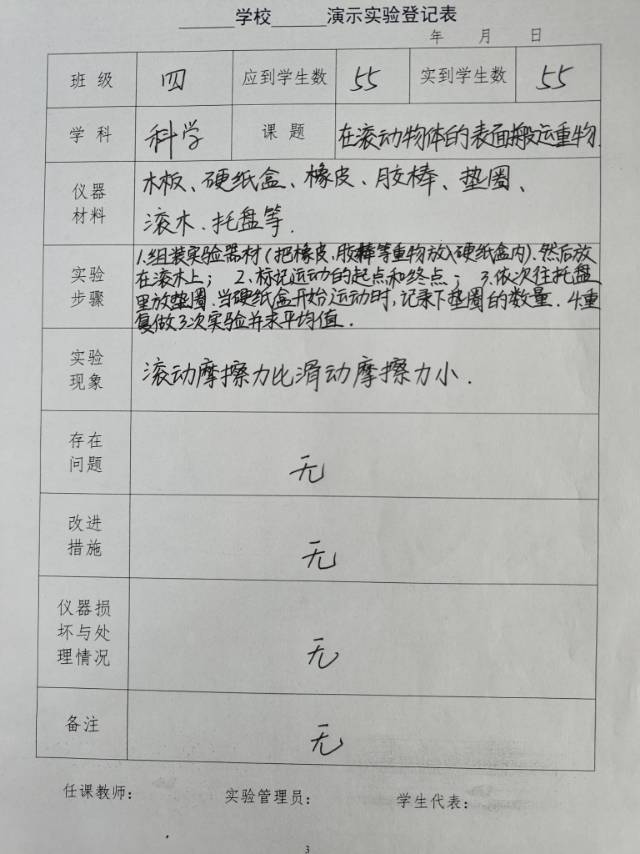 ______学校______演示实验登记表
年 月 日
班 级 四 应到学生数 55 实到学生数 55
学 科 科学 课 题 在滚动物体的表面搬运重物.
仪器
材料
木板、硬纸盒、橡皮、胶棒、垫圈、
滚木、托盘等.
实验
步骤
1.组装实验器材(把橡皮、胶棒等重物放入硬纸盒内).然后放
在滚木上; 2.标记运动的起点和终点; 3.依次往托盘
里放垫圈.当硬纸盒开始运动时,记录下垫圈的数量. 4.重
复做3次实验并求平均值.
实验
现象
滚动摩擦力比滑动摩擦力小.
存在
问题
无
改进
措施
无
仪器损
坏与处
理情况
无
备注 无
任课教师: 实验管理员: 学生代表:
3